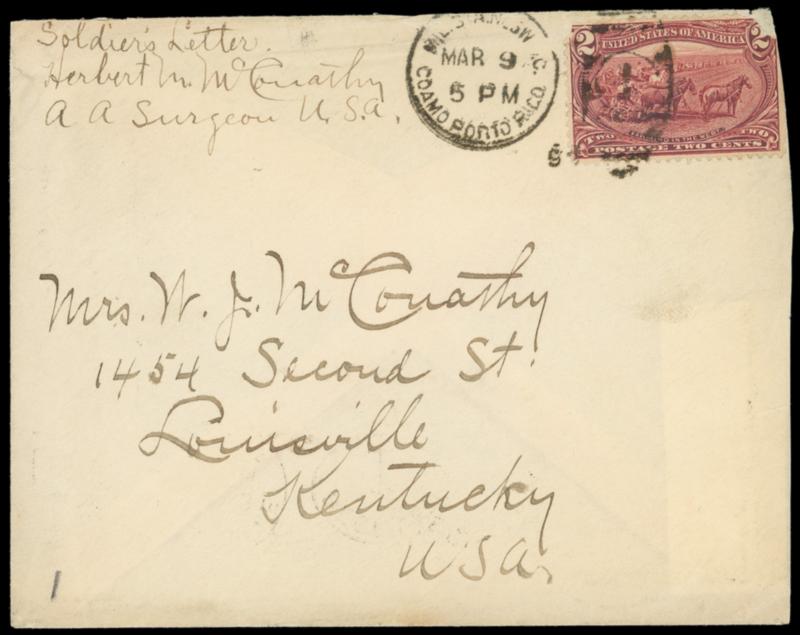 Soldier's Letter.
Herbert M. McConathy
A A Surgeon U.S.A.
MAR 9
5 PM
COAMO PORTO RICO.
2 UNITED STATES OF AMERICA 2
TWO IN THE WEST TWO
POSTAGE TWO CENTS
Mrs. W. J. McConathy
1454 Second St.
Louisville
Kentucky
USA.